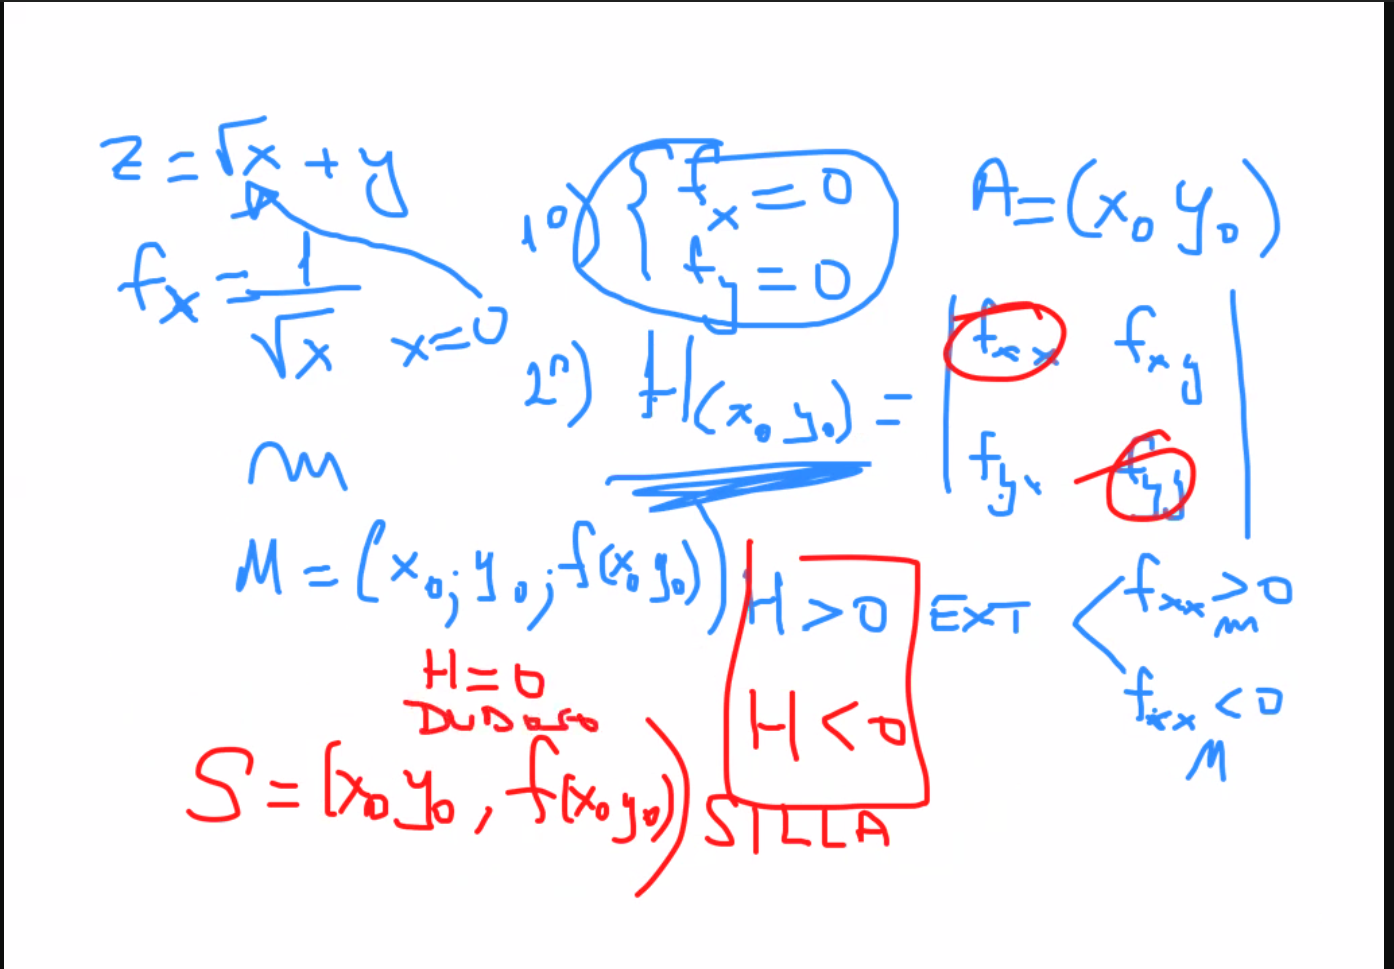 z = √x + y
f_x = 1/√x
x = 0
1º) { f_x = 0
f_y = 0
A = (x_0 y_0)
2º) H(x_0 y_0) = | f_xx f_xy |
| f_yx f_yy |
m
M = (x_0; y_0; f(x_0 y_0))
H > 0 EXT < f_xx > 0 m
f_xx < 0 M
H = 0
DUDOSO
H < 0
S = (x_0 y_0, f(x_0 y_0)) SILLA